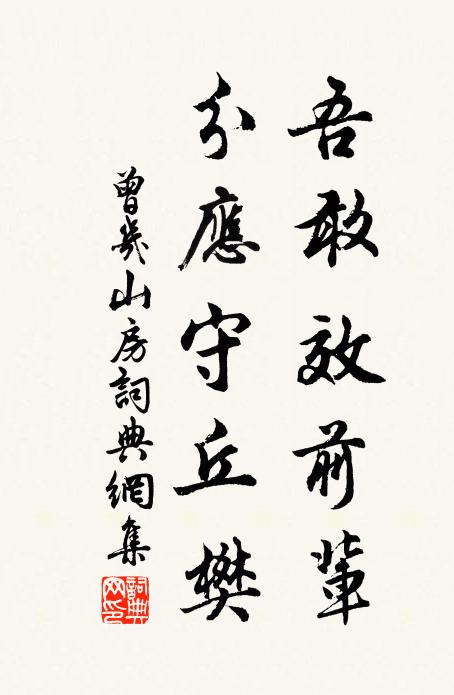 吾敢效前輩
分應守丘樊
曾幾山房詞典網集
詞典網印